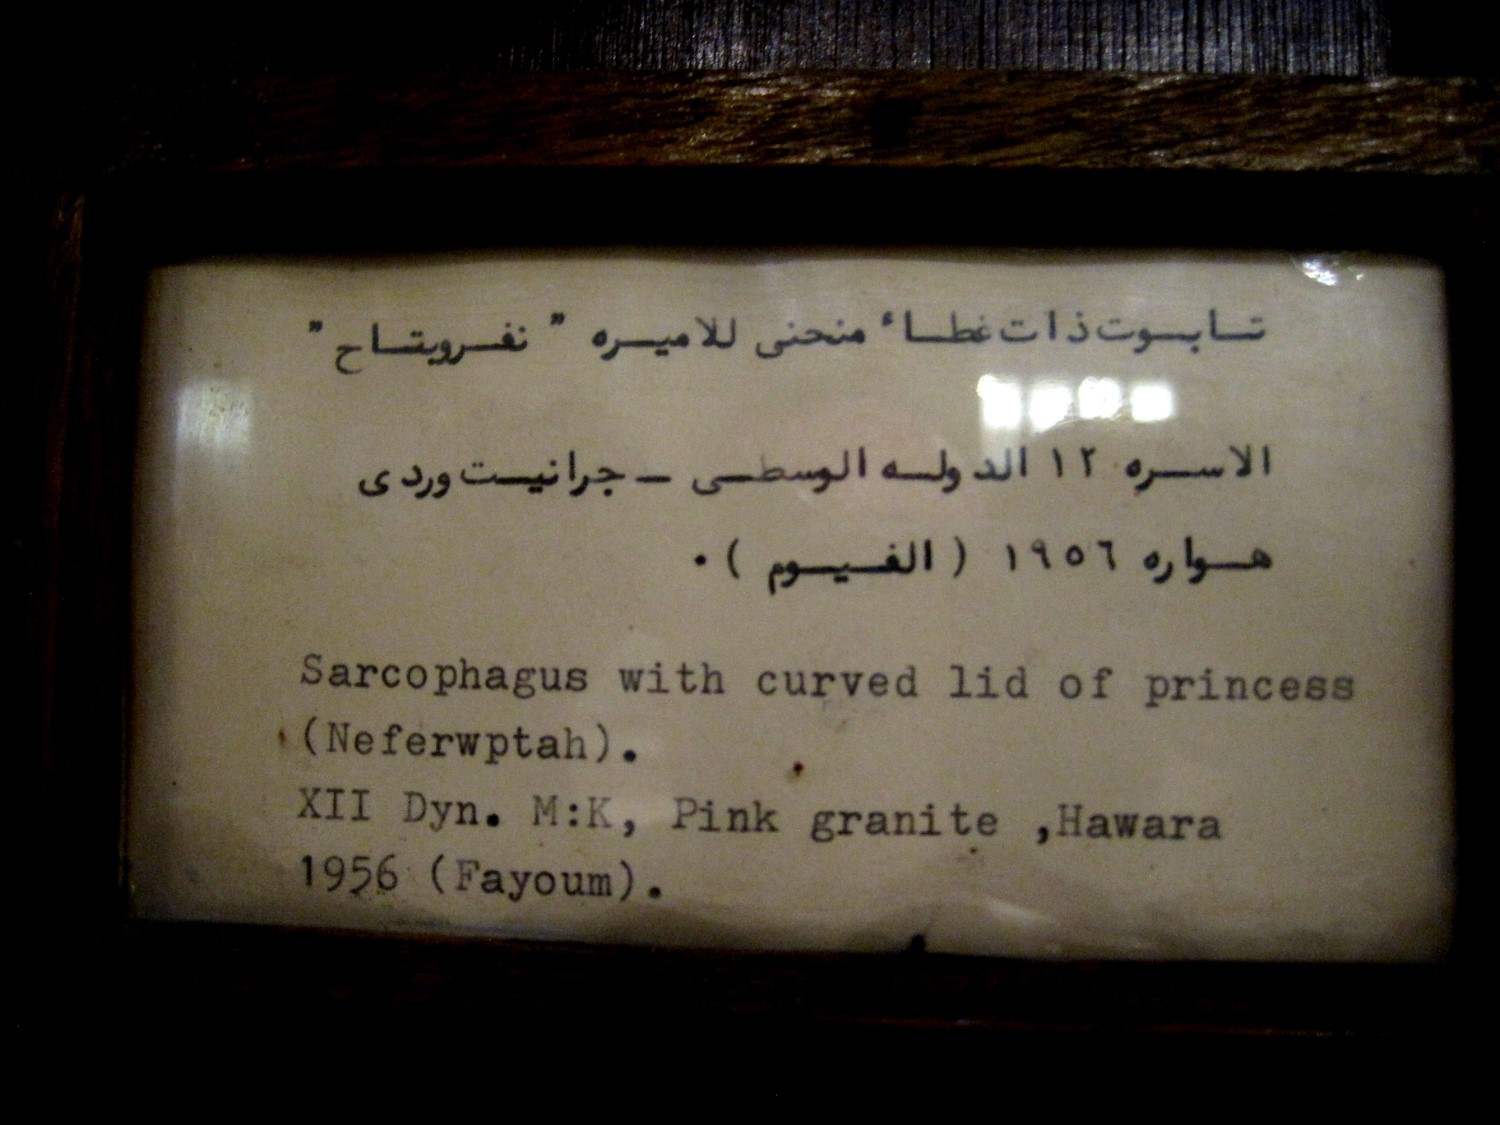 تابوت ذات غطاء منحنى للاميره " نفرويتاح "
الاسره ١٢ الدوله الوسطى - جرانيت وردى
هواره ١٩٥٦ ( الفيوم ) .
Sarcophagus with curved lid of princess
(Neferwptah).
XII Dyn. M:K, Pink granite ,Hawara
1956 (Fayoum).